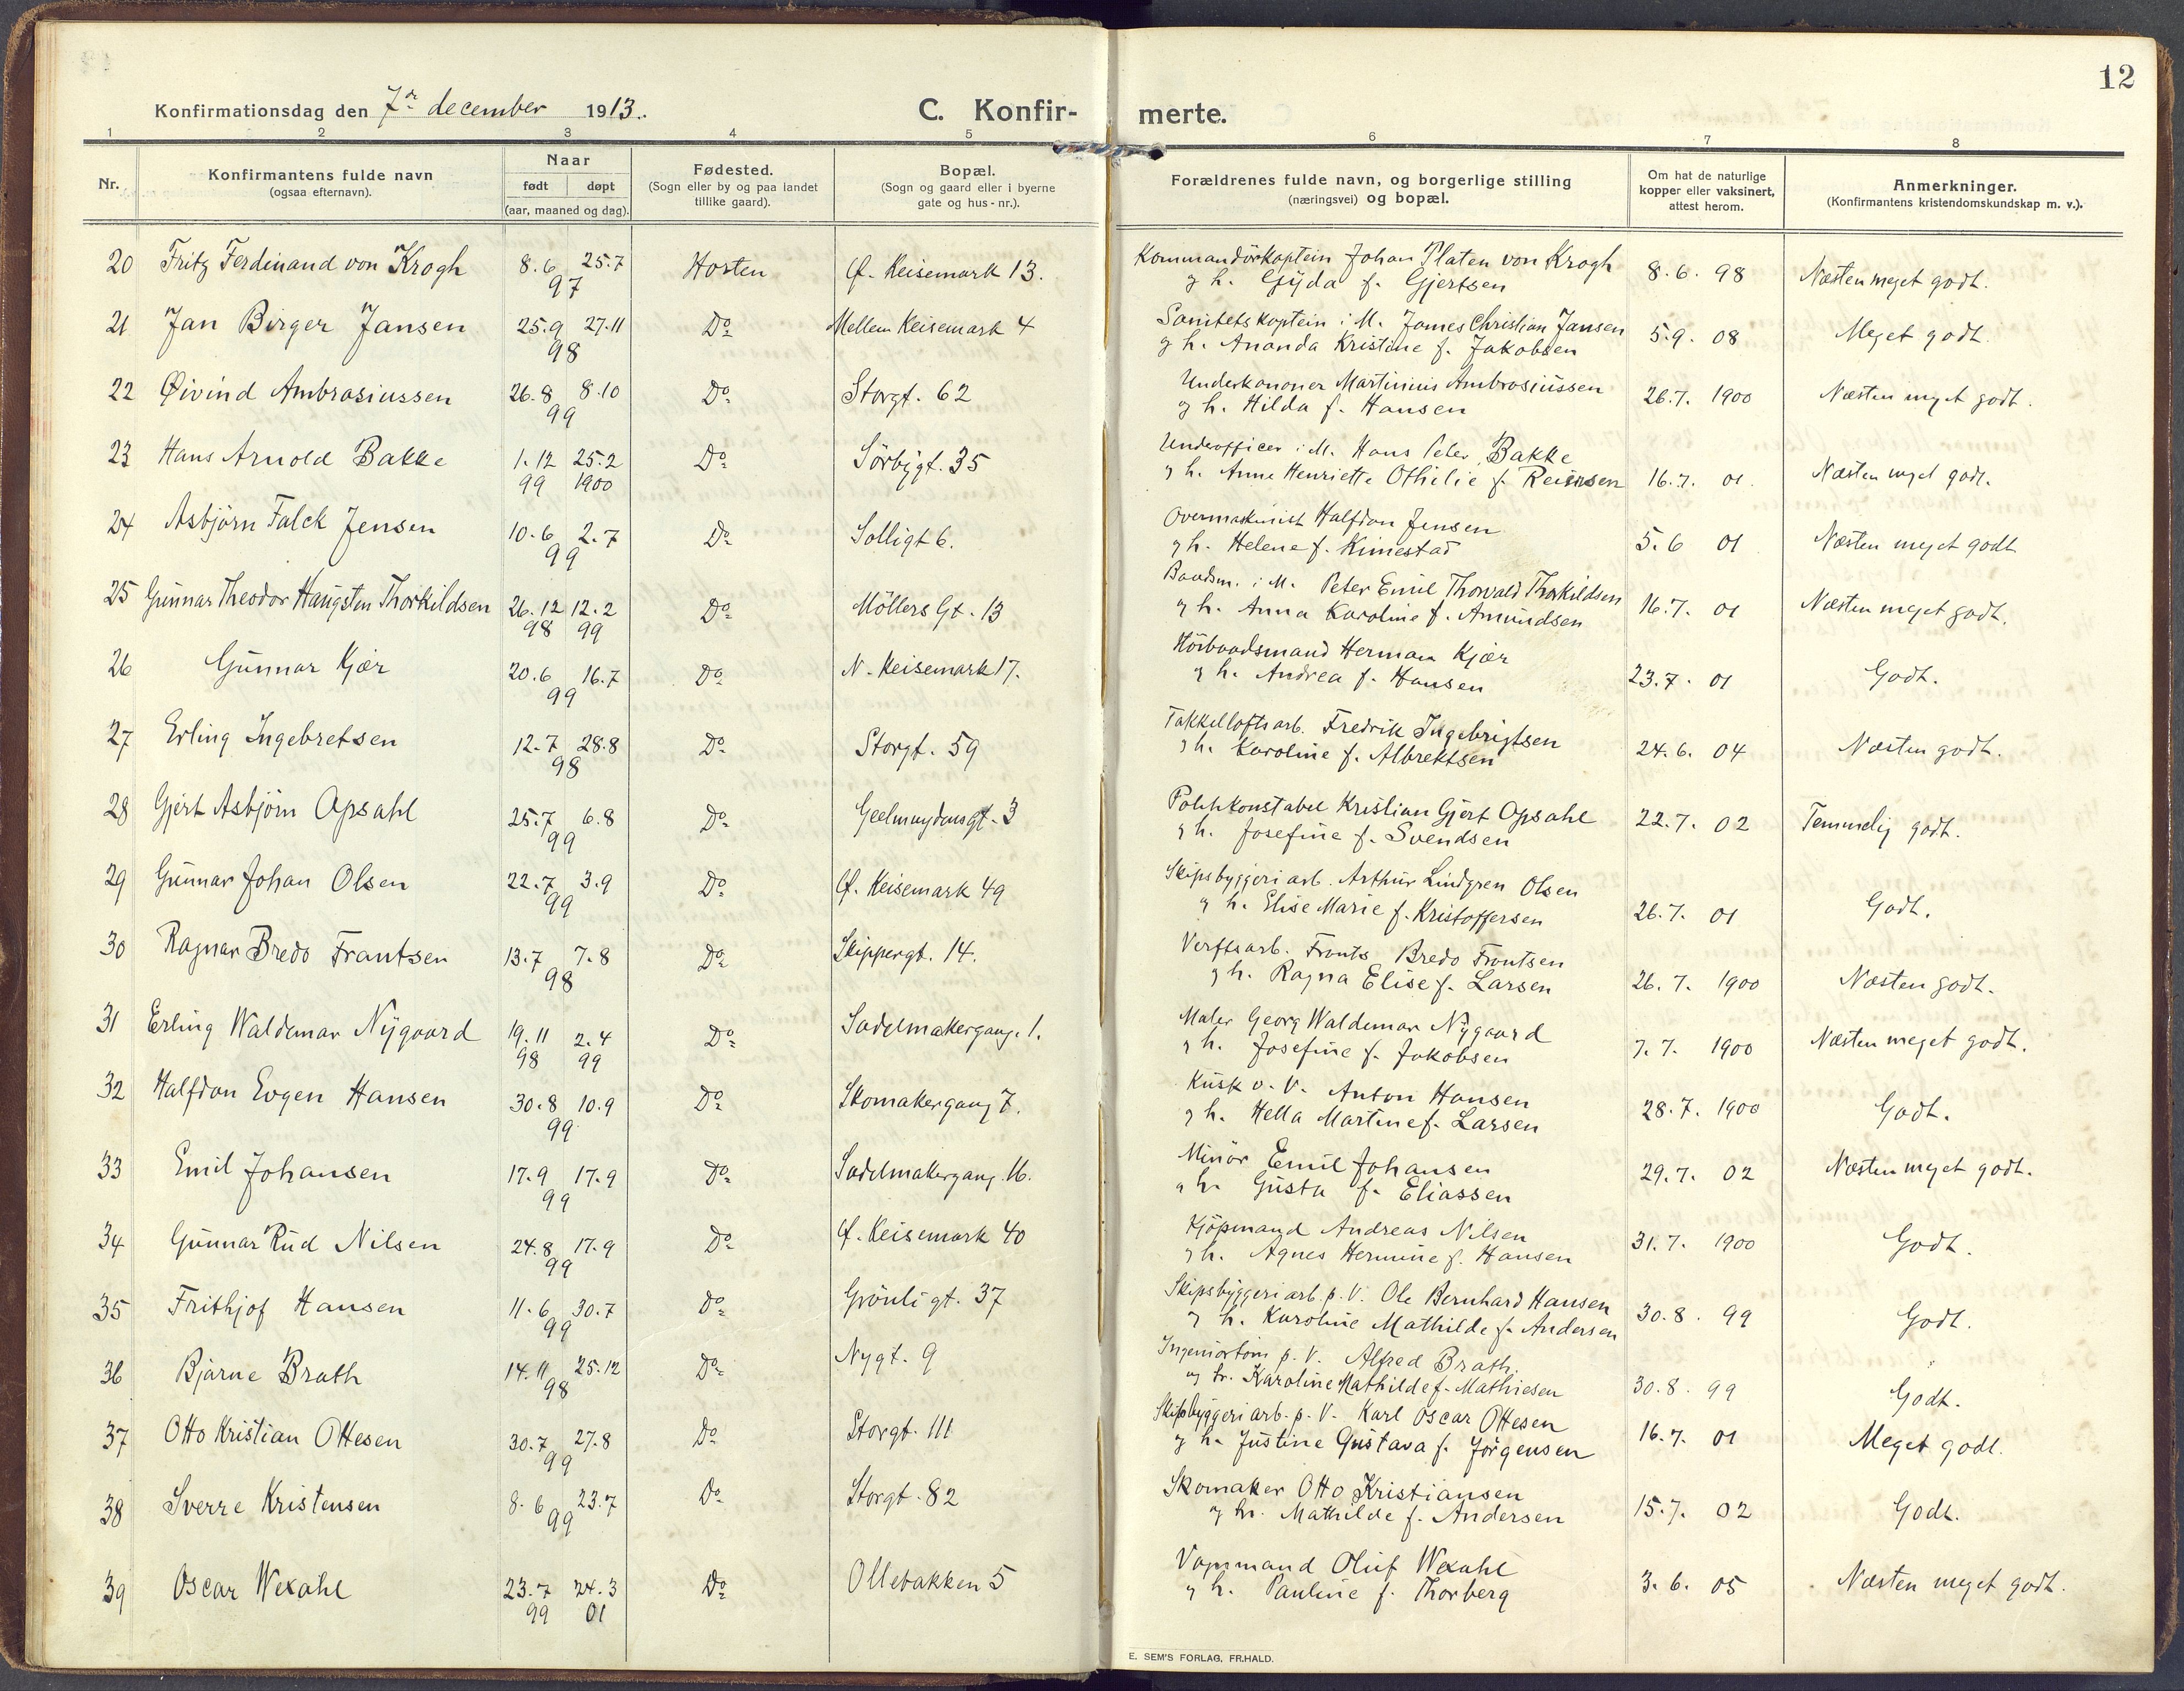 12
Konfirmationsdag den 7de december 1913.
C. Konfir- merte.
1 2 3 4 5 6 7 8
Nr.
Konfirmantens fulde navn
(ogsaa efternavn).
Naar
født døpt
(aar, maaned og dag).
Fødested.
(Sogn eller by og paa landet
tillike gaard).
Bopæl.
(Sogn og gaard eller i byerne
gate og hus-nr.).
Forældrenes fulde navn, og borgerlige stilling
(næringsvei) og bopæl.
Om hat de naturlige
kopper eller vaksinert,
attest herom.
Anmerkninger.
(Konfirmantens kristendomskundskap m. v.).
20 Fritz Ferdinand von Krogh 8.6 25.7 Horten Keisemark 13. Kommandörkaptein Johan Platen von Krogh 8.6. 98 Næsten meget godt.
97 og h. Gyda f. Gjertsen
21 Jan Birger Jansen 25.9 27.11 Do Mellem Keisemark 4 Sanitetskaptein i M. James Christian Jansen 5.9. 08 Meget godt.
98 og h. Ananda Kristine f. Jakobsen
22 Øivind Ambrosiussen 26.8 8.10 Do Storgt. 62 Underkanoner Martinius Ambrosiussen 26.7. 1900 Næsten meget godt.
99 og h. Hilda f. Hansen
23 Hans Arnold Bakke 1.12 25.2 Do Sörbygt. 35 Underofficer i M. Hans Peter Bakke 16.7. 01. Næsten meget godt.
99 1900 og h. Anne Henriette Othilie f. Reiersen
24 Asbjörn Falck Jensen 10.6 2.7 Do Solligt 6. Overmaskinist Halfdan Jensen 5.6 01 Næsten meget godt
99 og h. Helene f. Kimestad
25 Gunnar Theodor Haugsten Thorkildsen 26.12 12.2 Do Möllers Gt. 13 Baadsm. i M. Peter Emil Thorvald Thorkildsen 16.7. 01 Næsten meget godt.
98 99 og h. Anna Karoline f. Amundsen
26 Gunnar Kjær 20.6 16.7 Do N. Keisemark 17. Herman Kjær 23.7. 01 Godt.
99 og h. Andrea f. Hansen
27 Erling Ingebretsen 12.7 28.8 Do Storgt. 59 Takkelloftsarb. Fredrik Ingebrigtsen 24.6. 04 Næsten godt.
98 og h. Karoline f. Albrektsen
28 Gjert Asbjörn Opsahl 25.7 6.8 Do Geelmuydensgt. 3 Politikonstabel Kristian Gjert Opsahl 22.7. 02 Temmelig godt.
99 og h. Josefine f. Svendsen
29 Gunnar Johan Olsen 22.7 3.9 Do Keisemark 49 Skipsbyggeriarb. Arthur Lindgren Olsen 26.7. 01 Godt.
99 og h. Elise Marie f. Kristoffersen
30 Ragnar Bredo Frantsen 13.7 7.8 Do Skippergt. 14. Verftsarb. Frants Bredo Frantsen 26.7. 1900 Næsten godt.
98 og h. Ragna Elise f. Larsen
31 Erling Waldemar Nygaard 19.11 2.4 Do Sadelmakergang. 1. Maler Georg Waldemar Nygaard 7.7. 1900 Næsten meget godt.
98 99 og h. Josefine f. Jakobsen
32 Halfdan Evgen Hansen 30.8 10.9 Do Skomakergang 7. Kusk v. V. Anton Hansen 28.7. 1900 Godt.
99 og h. Hella Martine f. Larsen
33 Emil Johansen 17.9 17.9 Do Sadelmakergang. 16. Minör Emil Johansen 29.7. 02 Næsten meget godt.
99 og h. Gusta f. Eliassen
34 Gunnar Rud Nilsen 24.8 17.9 Do Keisemark 40 Kjöpmand Andreas Nilsen 31.7. 1900 Godt.
99 og h. Agnes Hermine f. Hansen
35 Frithjof Hansen 11.6 30.7 Do Grönligt. 37 Skipsbyggeriarb. p. V. Ole Bernhard Hansen 30.8. 99 Godt.
99 og h. Karoline Mathilde f. Andersen
36 Bjarne Brath 14.11 25.12 Do Nygt. 9 p. V. Alfred Brath. 30.8. 99 Godt.
98 og h. Karoline Mathilde f. Mathiesen
37 Otto Kristian Ottesen 30.7 27.8 Do Storgt. 111 Skipsbyggeriarb. p. V. Karl Oscar Ottesen 16.7. 01 Meget godt.
99 og h. Justine Gustava f. Jörgensen
38 Sverre Kristensen 8.6 23.7 Do Storgt. 82 Skomaker Otto Kristiansen 15.7. 02 Godt.
99 og h. Mathilde f. Andersen
39 Oscar Wexahl 23.7 24.3 Do Ollebakken 5 Vognmand Oluf Wexahl 3.6. 05 Næsten meget godt.
99 01 og h. Pauline f. Thorberg
E. SEM'S FORLAG, FR.HALD.